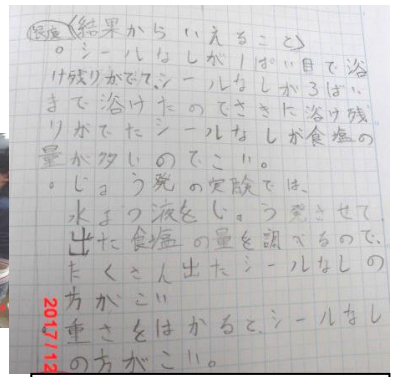 食塩 (結果からいえること)
○シールなしが1ぱい目で溶
け残りがでて、シールなしが3ばい
まで溶けたのでさきに溶け残
りがでたシールなしが食塩の
量が多いのでこい。
○じょう発の実験では、
水よう液をじょう発させて
出た食塩の量を調べるので、
たくさん出たシールなしの
方がこい
重さをはかるとシールなし
の方がこい。
2017/12